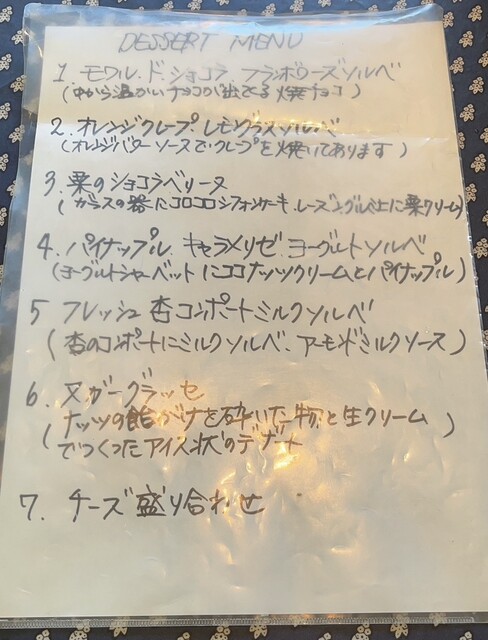 DESSERT MENU
1. モワル.ド.ショコラ フランボワーズソルベ
(中から温かいチョコが出てくる焼チョコ)
2. オレンジクレープ.レモングラスソルベ
(オレンジバターソースで.クレープを焼いてあります)
3. 栗のショコラベリーヌ
(ガラスの器にコロコロシフォンケーキ.レーズン 上に栗クリーム)
4. パイナップル.キャラメリゼ.ヨーグルトソルベ
(ヨーグルトシャーベットにココナッツクリームとパイナップル)
5 フレッシュ杏コンポートミルクソルベ
(杏のコンポートにミルクソルベ.アーモンドミルクソース)
6. ヌガーグラッセ
(ナッツの飴がけを砕いた物と生クリーム
でつくったアイス状のデザート
7. チーズ盛り合わせ